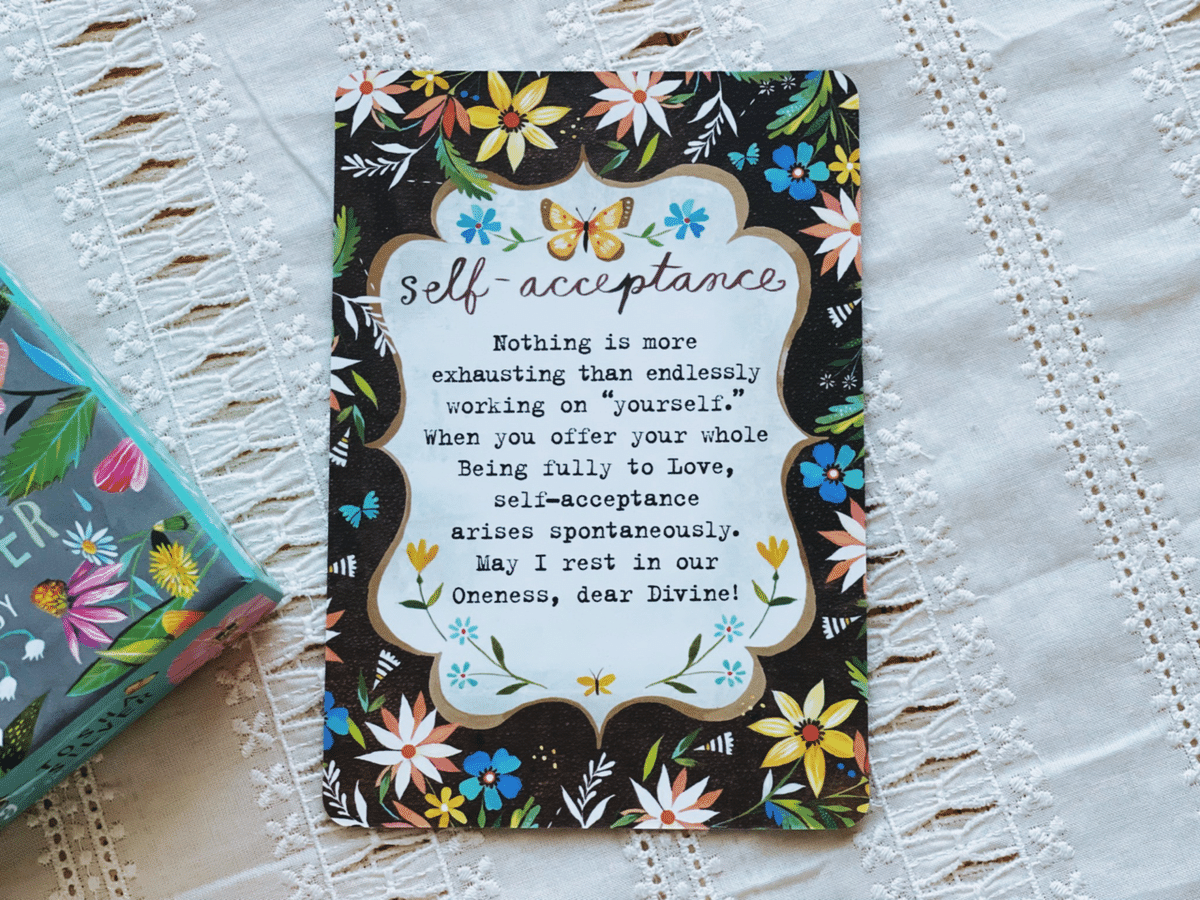 self-acceptance
Nothing is more
exhausting than endlessly
working on “yourself.”
When you offer your whole
Being fully to Love,
self—acceptance
arises spontaneously.
May I rest in our
Oneness, dear Divine!